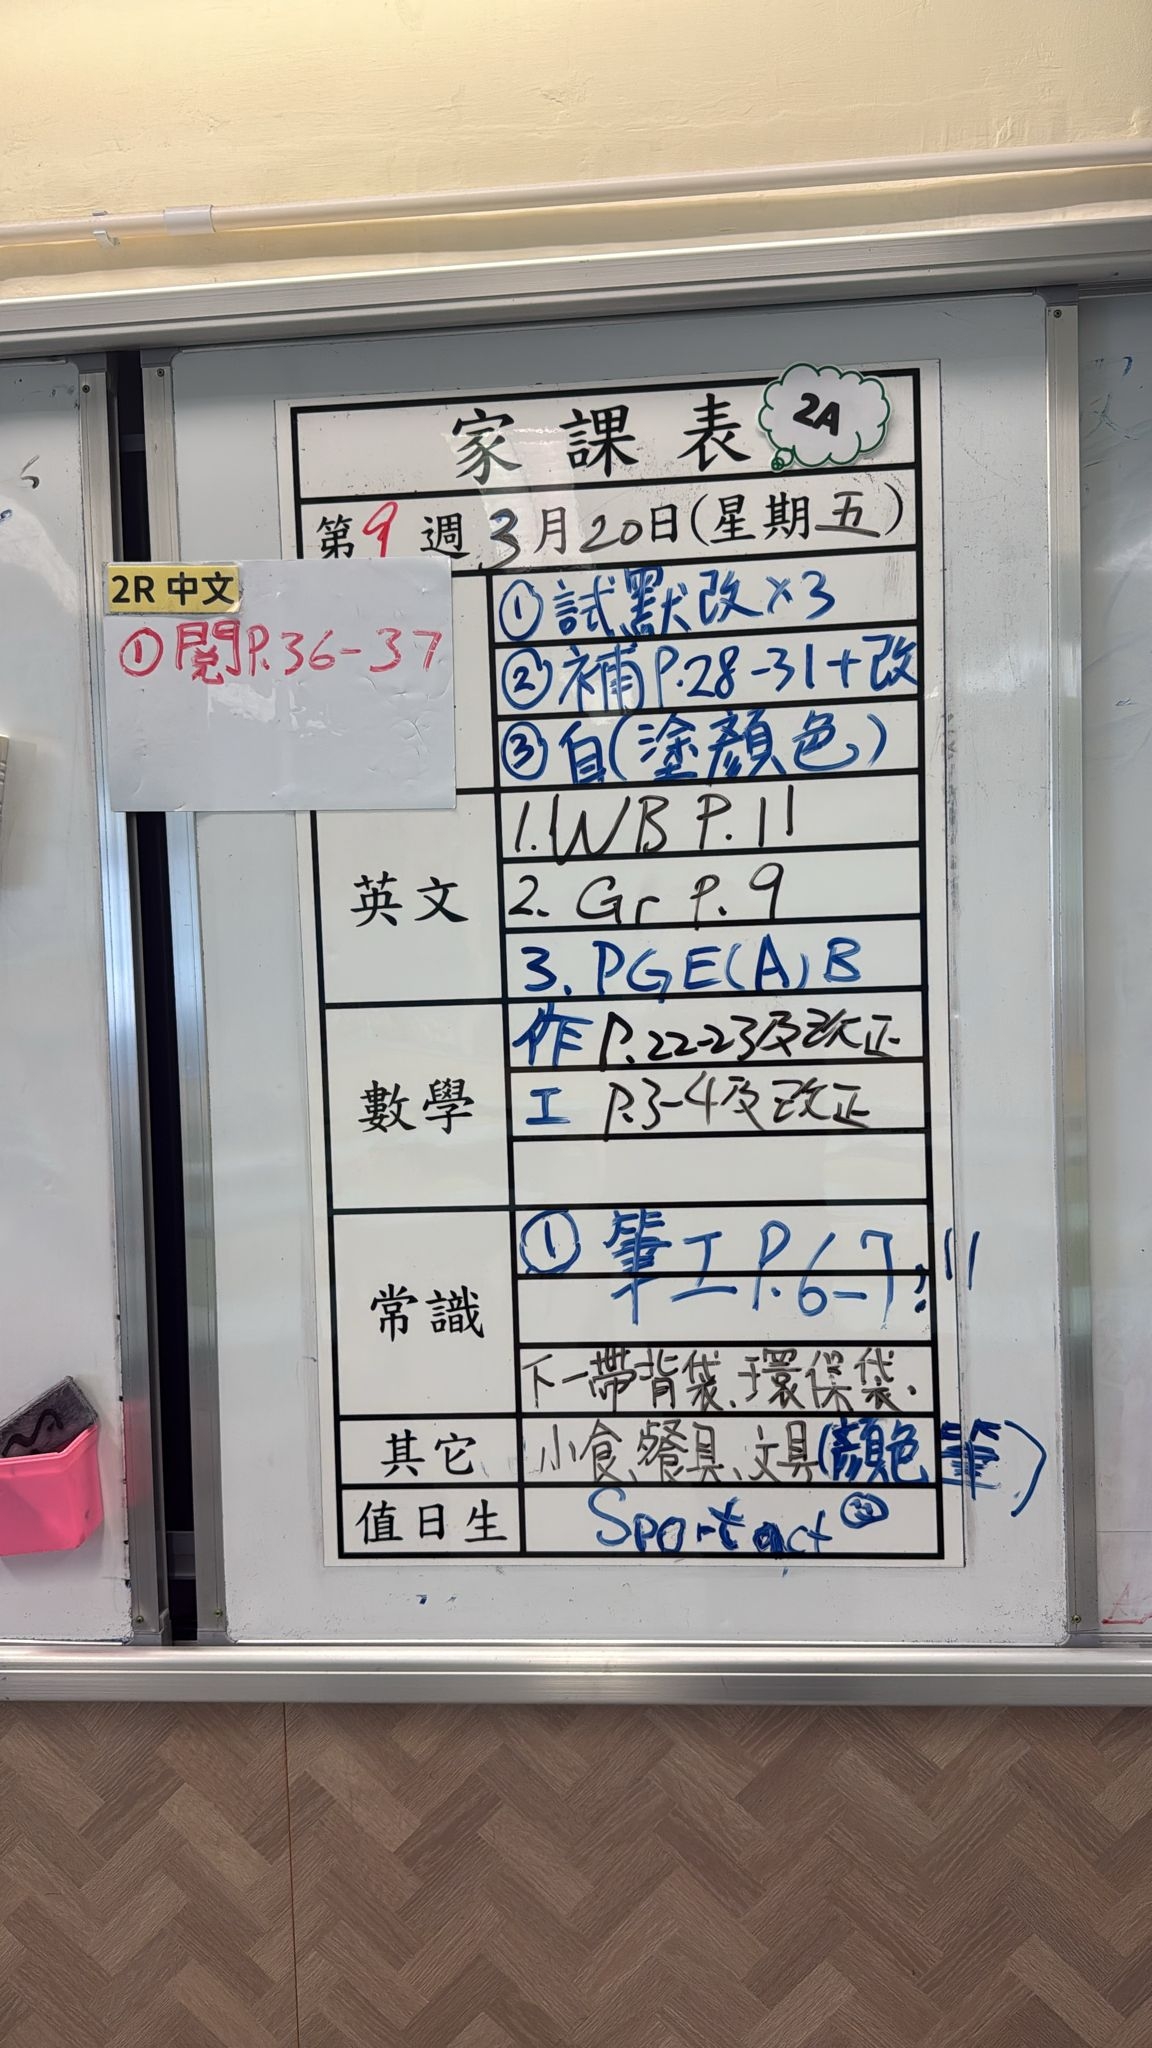 家課表
2A
第9週 3月20日(星期五)
2R 中文
①閱P.36-37
①試默改×3
②補P.28-31+改
③自(塗顏色)
英文
1. WB P.11
2. Gr P.9
3. PGE(A)B
數學
作 P.22-23及改正
工 P.3-4及改正
常識
① 筆工P.6-7,11
下一帶背袋、環保袋、
其它
小食、餐具、文具(顏色筆)
值日生
Sport act